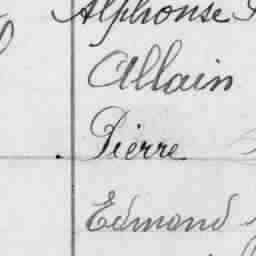 Alphonse
Allain
Pierre
Edmond